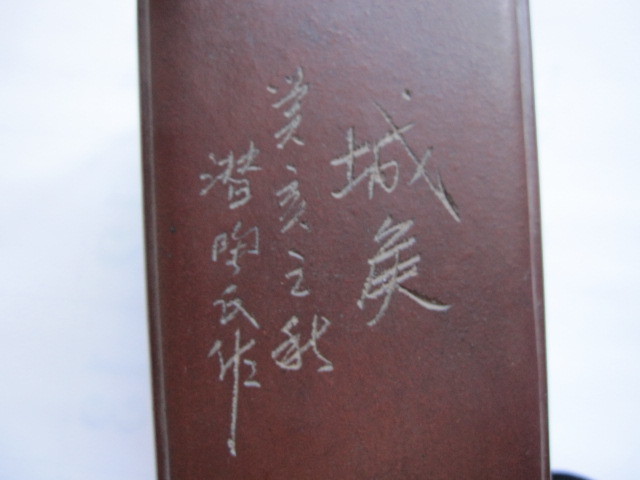 城
癸亥之秋
潜陶氏作